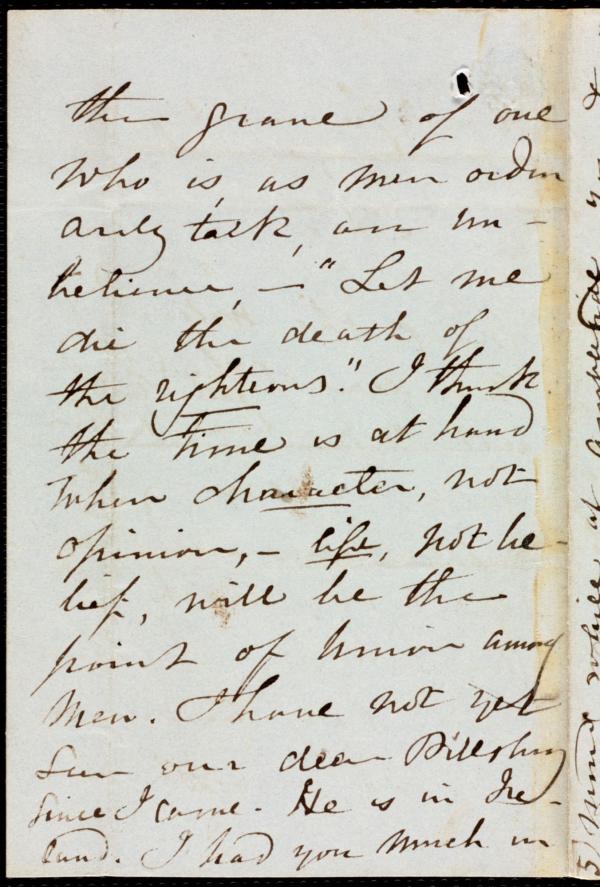 the grave of one
who is, as men ordin
arily talk, an un-
believer, - "Let me
die the death of
the righteous". I think
the time is at hand
when character, not
opinion, - life, not be-
lief, will be the
point of union among
men. I have not yet
seen our dear Pillsbury
since I came. He is in Ire-
land. I had you much in
5) mind while at Ambleside you &